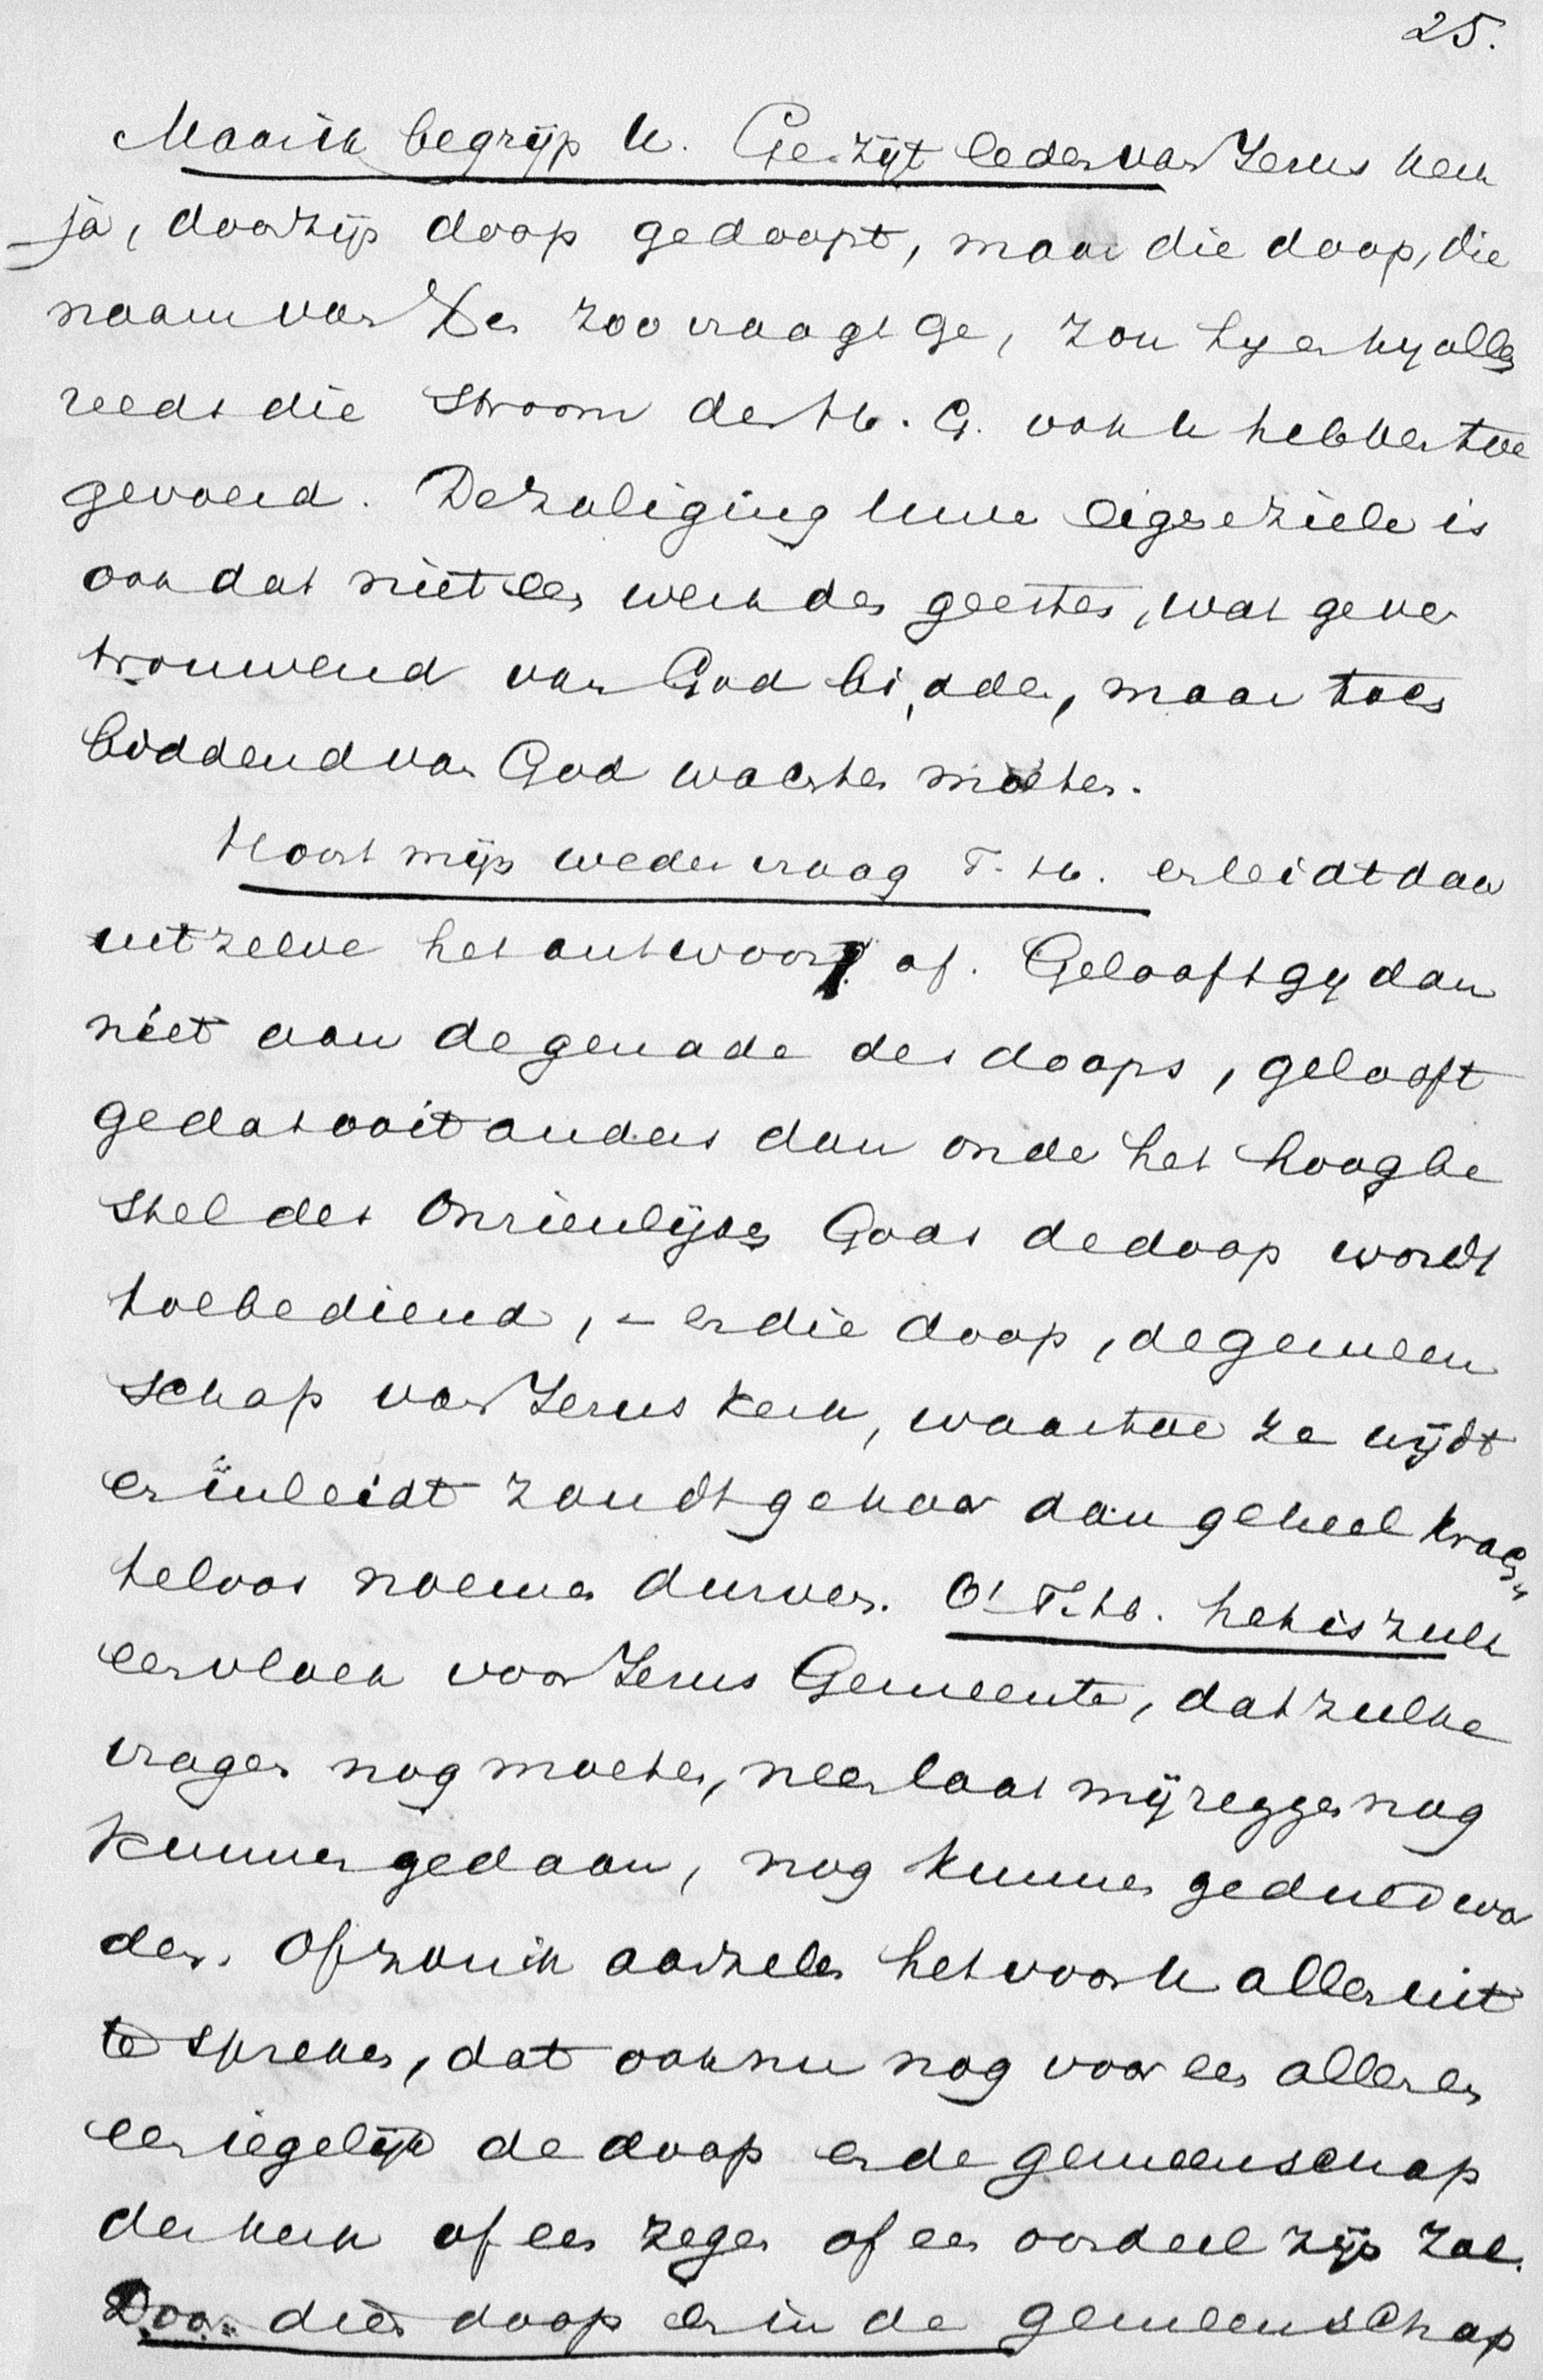 25.
Maar ik begrijp U. Ge zijt leden van Jezus kerk
ja, door zijn doop gedoopt, maar die doop, die
naam van        zoo vraagt ge, zou hij er bij alles
reeds die stroom des H. G. ook U hebben toe
gevoerd. De zaliging uwer eigene ziele is
ook dat niet een werk des geestes, wat ge ver
trouwend van God bidden, maar toch
biddend van God wachten moeten.
Hoort mijn weder vraag T. H. en leidt daar
uit zelve het antwoord af. Gelooft gij dan
niet aan de genade des doops, gelooft
ge dat ooit anders dan onder het hoog be
stel des Onzienlijken Gods de doop wordt
toebediend, – en die doop, de gemeen
schap van Jezus kerk, waartoe ze wijdt
en inleidt zoudt ge haar dan geheel krach„
teloos noemen durven. O! T. H. het is zulk
een vloek voor Jezus Gemeente, dat zulke
vragen nog moeten, neen laat mij zeggen nog
kunnen gedaan, nog kunnen geduld wor
den. Of zou ik aarzelen het voor U allen uit
te spreken, dat ook nu nog voor een allen en
een iegelijk de doop en de gemeenschap
der kerk of een zegen of een oordeel zijn zal.
Door dien doop en in de gemeenschap